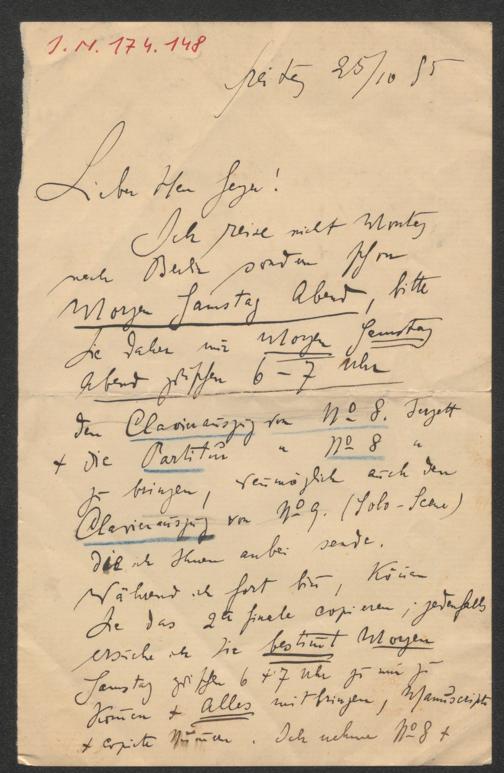 J.N. 174.148
Freitag 25/10 95
Lieber Herr Geyer!
Ich reise nicht Montag
nach Berlin sondern schon
Morgen Samstag Abend, bitte
Sie daher mir Morgen Samstag
Abend zwischen 6 – 7 Uhr
den Clavierauszug von No 8. Terzett
+ die Partitur " No 8 "
zu bringen, womöglich auch den
Clavierauszug von No 9. (Solo-Scene)
die ich Ihnen anbei sende.
Während ich fort bin, können
Sie das 2te Finale copieren; jedenfalls
ersuche ich Sie bestimmt Morgen
Samstag zwischen 6 + 7 Uhr zu mir zu
kommen + Alles mitbringen, Manuscripte
+ copirte Nummern. Ich nehme No 8 +